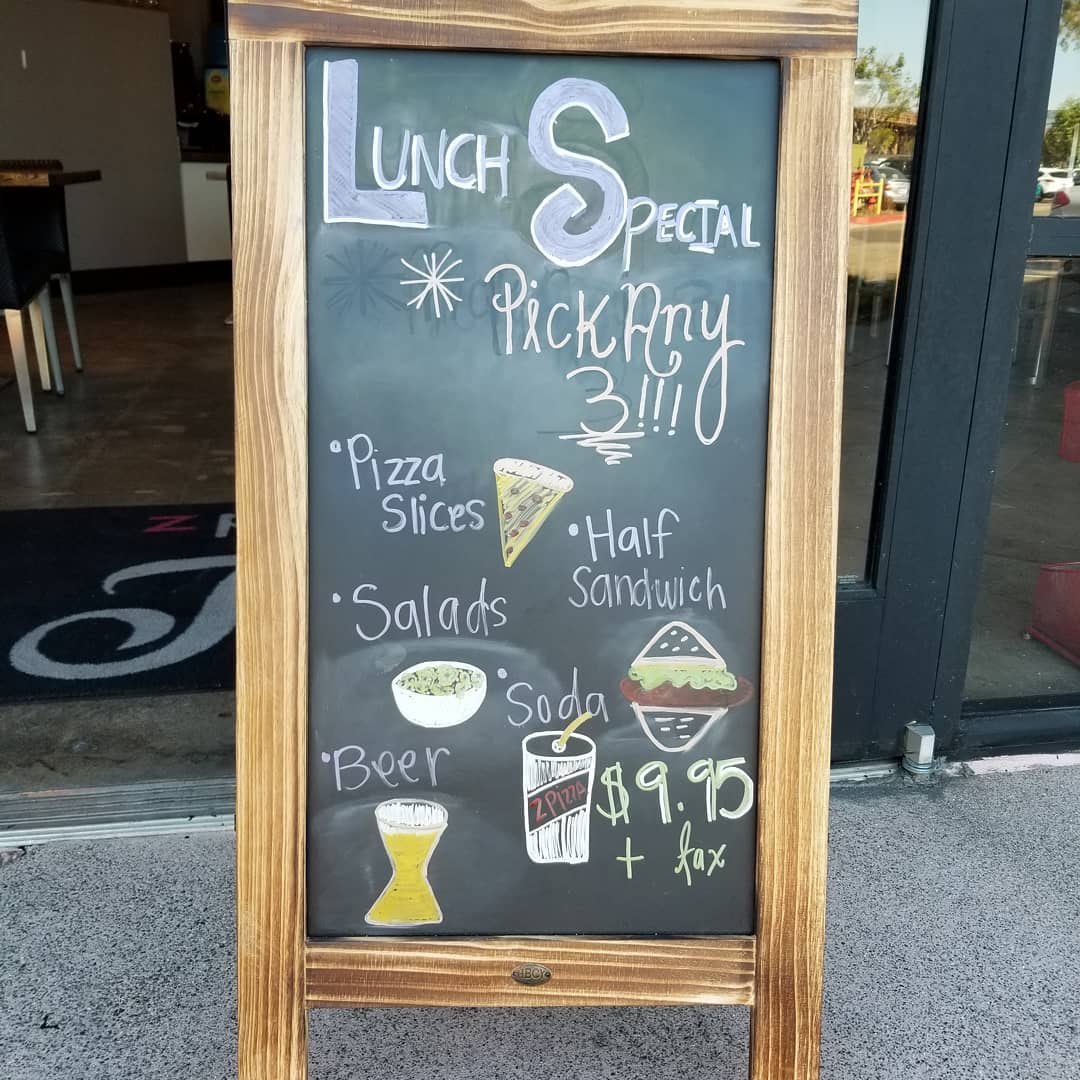 Lunch Special
Pick Any
3!!!
• Pizza
Slices
• Half
Sandwich
• Salads
• Soda
• Beer
Z Pizza
$9.95
+ tax